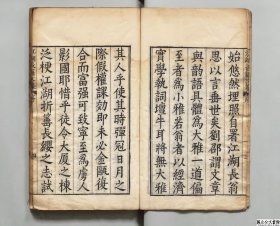 始悠然埋照自署江湖長翁
思以言垂世矣劉邵謂文章
與齡語具體為大雅一道偏
至者為小雅若翁者以經濟
實學執詞壇牛耳將無大雅
其人乎使其時彈冠日月之
際假權課効即未必金甌復
合而富强可致寧至為虜人
影國耶惜乎徒令大厦之棟
之梗江湖折䇲長纓之志試